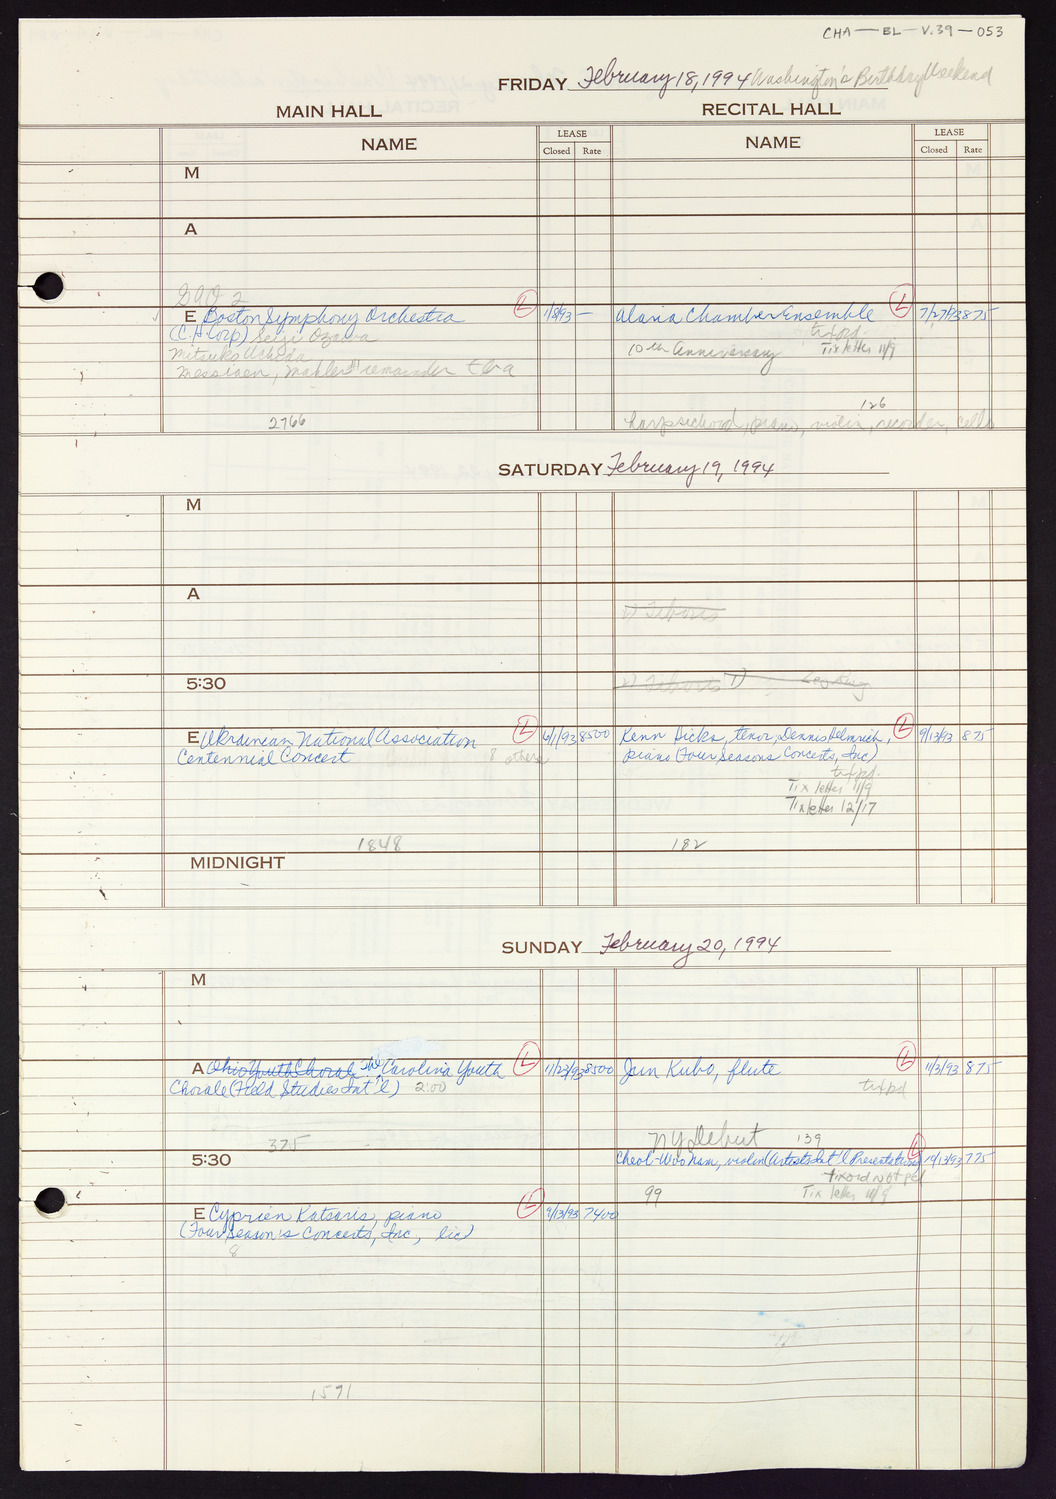 CHA-EL-V.39-053
FRIDAY February 18, 1994 Washington's Birthday Weekend
MAIN HALL
RECITAL HALL
NAME
LEASE
Closed Rate
NAME
LEASE
Closed Rate
M
A
E Boston Symphony Orchestra L –
(C.H. Corp) Seiji Ozawa
Mitsuko Uchida
Messiaen, Mahler remainder tba
2766
Alaria Chamber Ensemble L 7/27/93 875
tix pd.
10th Anniversary Tix letter 11/9
126
harpsichord, piano, violin, recorder, cello
SATURDAY February 19, 1994
M
A
5:30
E Ukrainian National Association L 6/1/93 8500
Centennial Concert 8 others
1848
Kenn Hicks, tenor, Dennis Helmrich, L 9/13/93 875
piano (Four Seasons Concerts, Inc)
tix pd.
Tix letter 11/9
Tix letter 12/17
182
MIDNIGHT
SUNDAY February 20, 1994
M
A Ohio Youth Chorale The Carolina Youth L 11/23/93 8500
Chorale (Field Studies Int'l) 2:00
375
Jun Kubo, flute L 11/3/93 875
tix pd
NY Debut 139
5:30
Cheol-Woo Nam, violin (Artists Int'l Presentations) L 10/13/93 775
tix ord not pd
99 Tix letter
E Cyprien Katsaris, piano L 9/13/93 7400
(Four Season's Concerts, Inc., lic)
8
1591